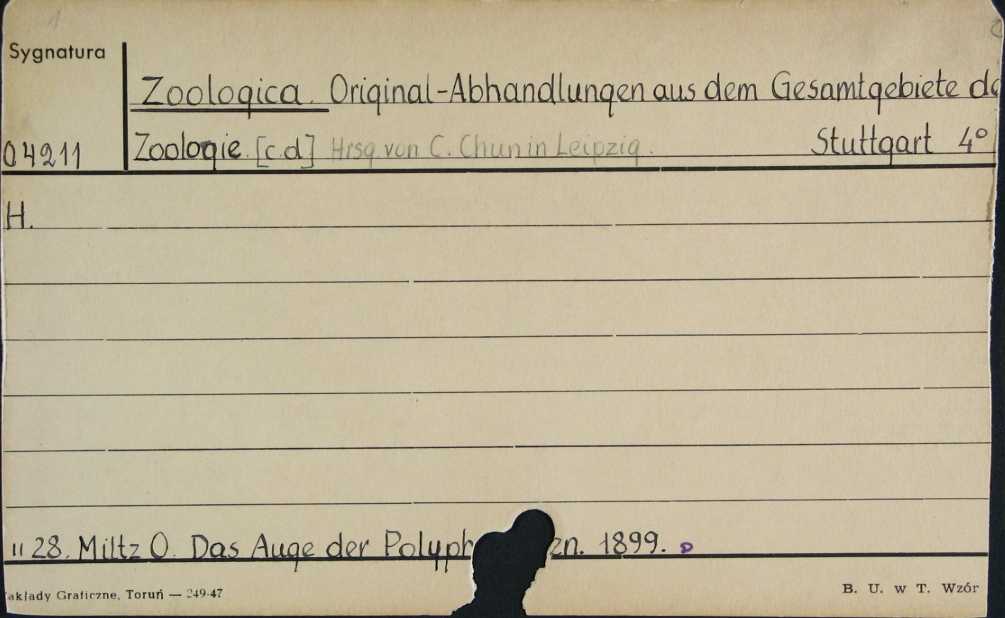 Sygnatura
Zoologica. Original-Abhandlungen aus dem Gesamtgebiete de
04211 Zoologie. [c.d] Hrsg. von C. Chun in Leipzig. Stuttgart 4°
H.
" 28. Miltz O. Das Auge der Polyph zn. 1899. D
akłady Graficzne, Toruń — 249-47 B. U. w T. Wzór